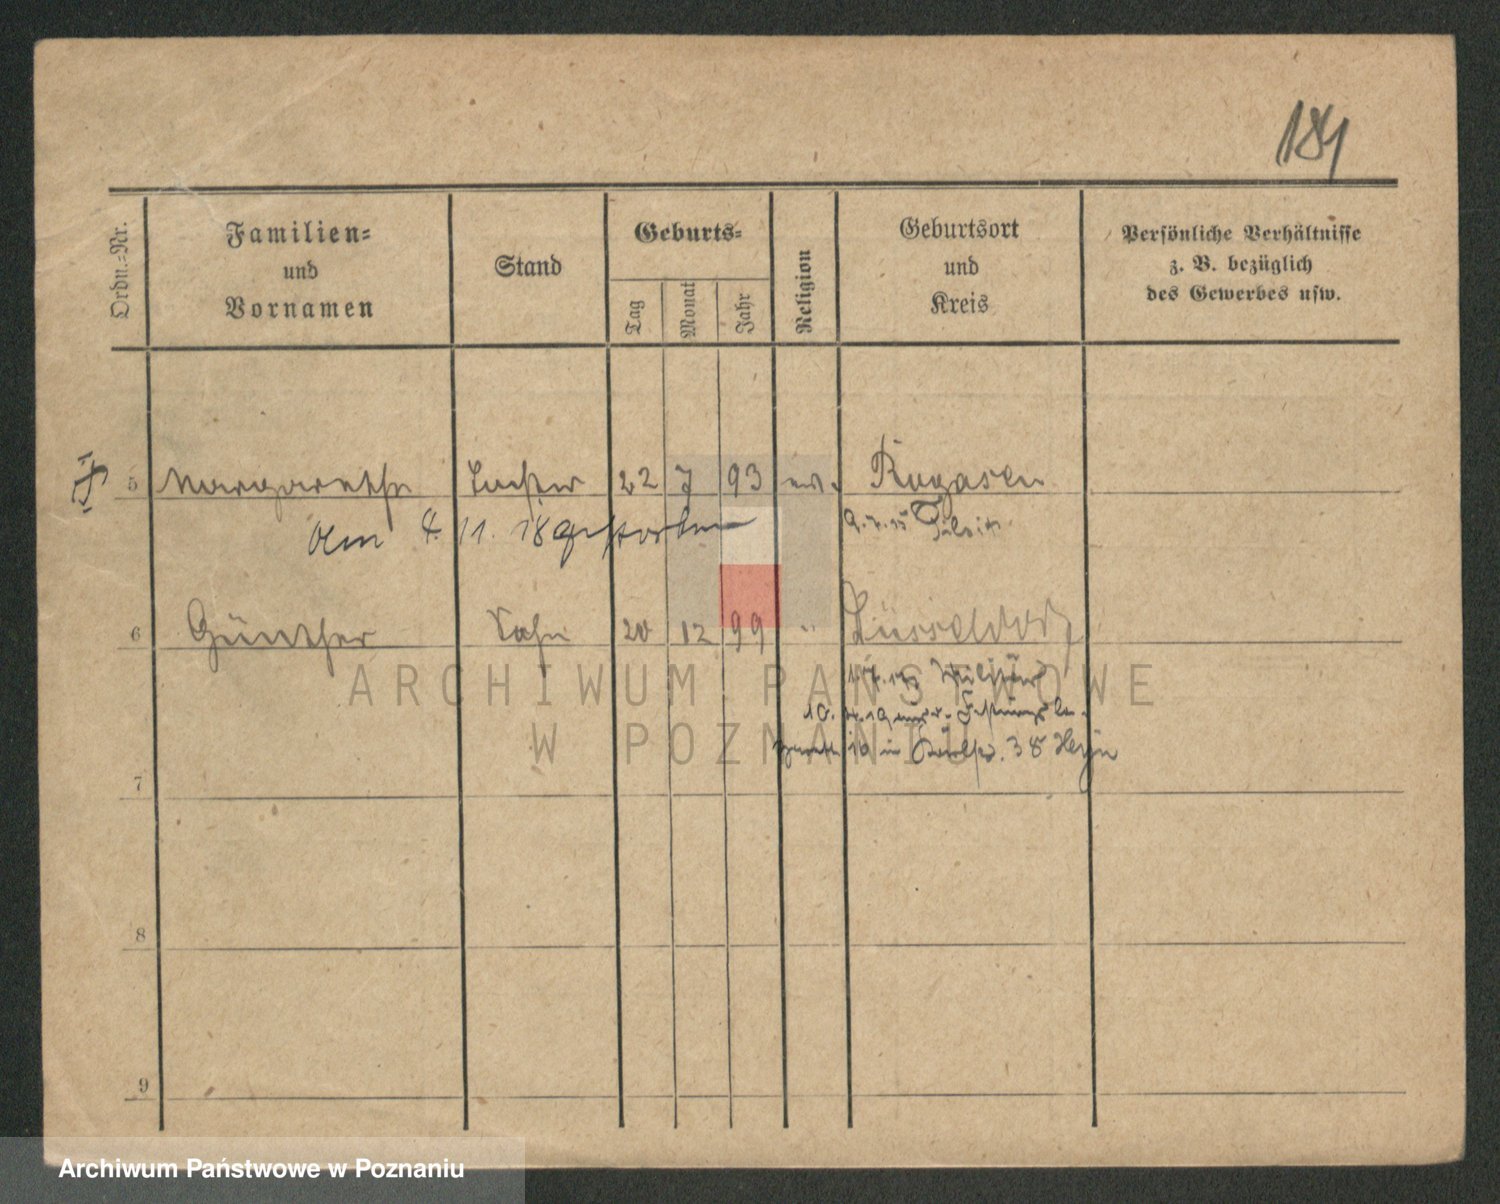 184
Ordn.=Nr.
Familien=
und
Vornamen
Stand
Geburts=
Tag
Monat
Jahr
Religion
Geburtsort
und
Kreis
Persönliche Verhältnisse
z. B. bezüglich
des Gewerbes usw.
5 Margarethe Tochter 22 7 93 ev. Rogasen
Am 4. 11. 18 gestorben
6 Günther Sohn 20 12 99 " Düsseldorf
Militär
7
8
9
ARCHIWUM PAŃSTWOWE
W POZNANIU
Archiwum Państwowe w Poznaniu